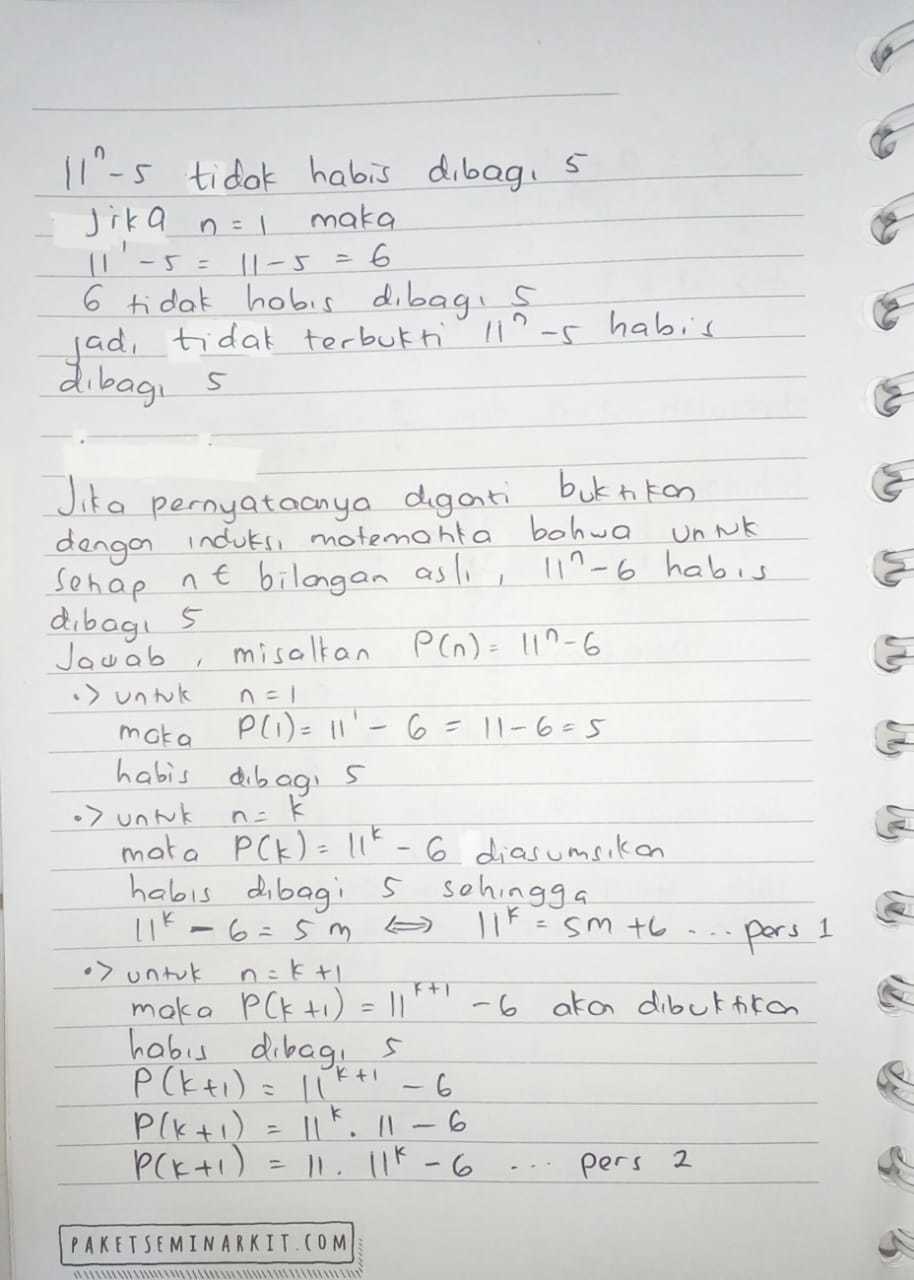 11ⁿ-5 tidak habis dibagi 5
Jika n = 1 maka
11¹ - 5 = 11 - 5 = 6
6 tidak habis dibagi 5
jadi tidak terbukti 11ⁿ - 5 habis
dibagi 5
Jika pernyataanya diganti buktikan
dengan induksi matematika bahwa untuk
setiap n ∈ bilangan asli, 11ⁿ-6 habis
dibagi 5
Jawab, misalkan P(n) = 11ⁿ-6
•> untuk n = 1
maka P(1) = 11¹ - 6 = 11 - 6 = 5
habis dibagi 5
•> untuk n = k
maka P(k) = 11ᵏ - 6 diasumsikan
habis dibagi 5 sehingga
11ᵏ - 6 = 5m ⟺ 11ᵏ = 5m + 6 ... pers 1
•> untuk n = k + 1
maka P(k+1) = 11ᵏ⁺¹ - 6 akan dibuktikan
habis dibagi 5
P(k+1) = 11ᵏ⁺¹ - 6
P(k+1) = 11ᵏ . 11 - 6
P(k+1) = 11 . 11ᵏ - 6 ... pers 2
PAKETSEMINARKIT.COM